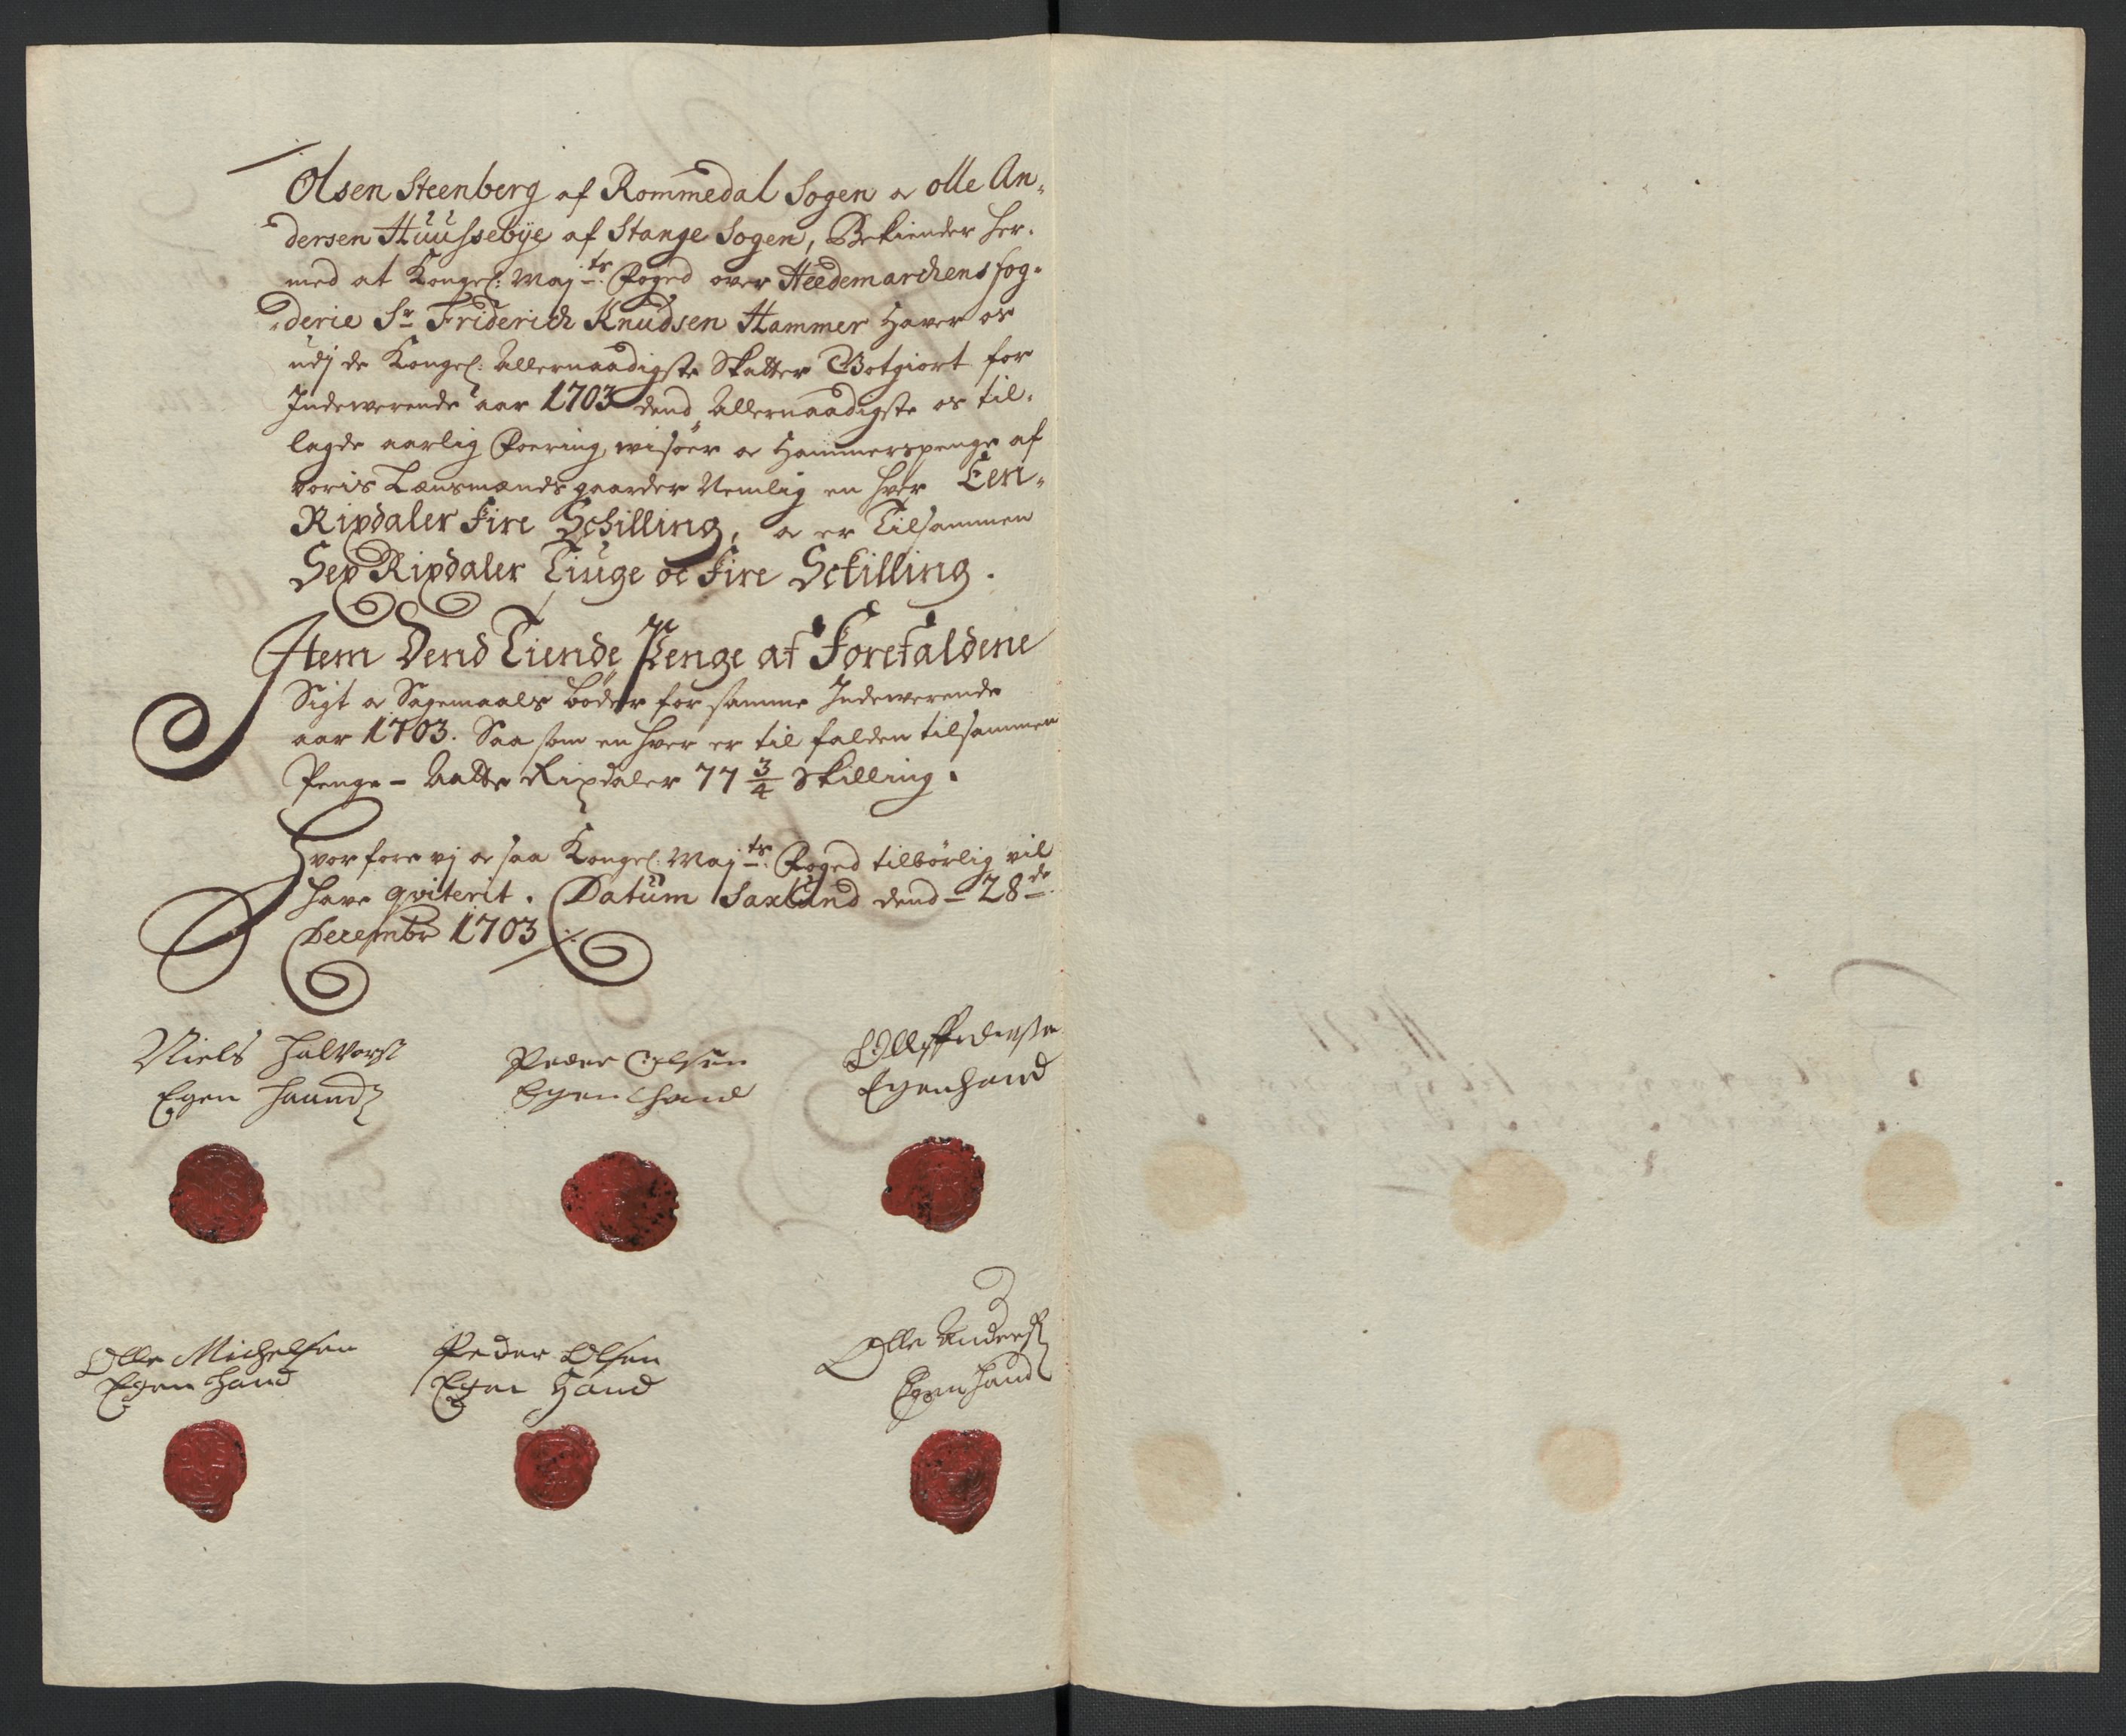 Olsen Steenberg af Rommedal Sogen oc olle An-
dersen Huussebÿe af Stange Sogen, Bekiender her-
med at Kongel: Maj:ts Foged over Heedemarchens fog-
derie Sr Friderich Knudsen Hammer Haver os
udj de Kongel: Allernaadigste Skatter Gotgiort for
Indewerende aar 1703 dend Allernaadigste os til-
lagde aarlig Foering, wisöer oc Hammerspenge af
voris Lænsmands gaarder Nemlig en hver Een-
Rixdaler Fire Schilling, oc er Tilsammen
Sex Rixdaler Tiuge oc Fire Schilling.
Item Dend Tiende Penge af Forefaldene
Sigt oc Sagemaals böder for samme Indewerende
aar 1703. Saa som en hver er til falden tilsammen
Penge - Aatte Rixdaler 77 3/4 Skilling.
Hvorfore vj oc saa Kongel: Maj:ts Foged tilbörlig vil
have qviterit. Datum Saxlund dend - 28de
Decembr 1703 ∕.
Niels Halvorss
Egen Haand
Peder Olsen
Egen Hand
Olle Pedersen
Egenhand
Olle Michelsen
Egen Hand
Peder Olsen
Egen Hand
Olle Anders
Egen Hand